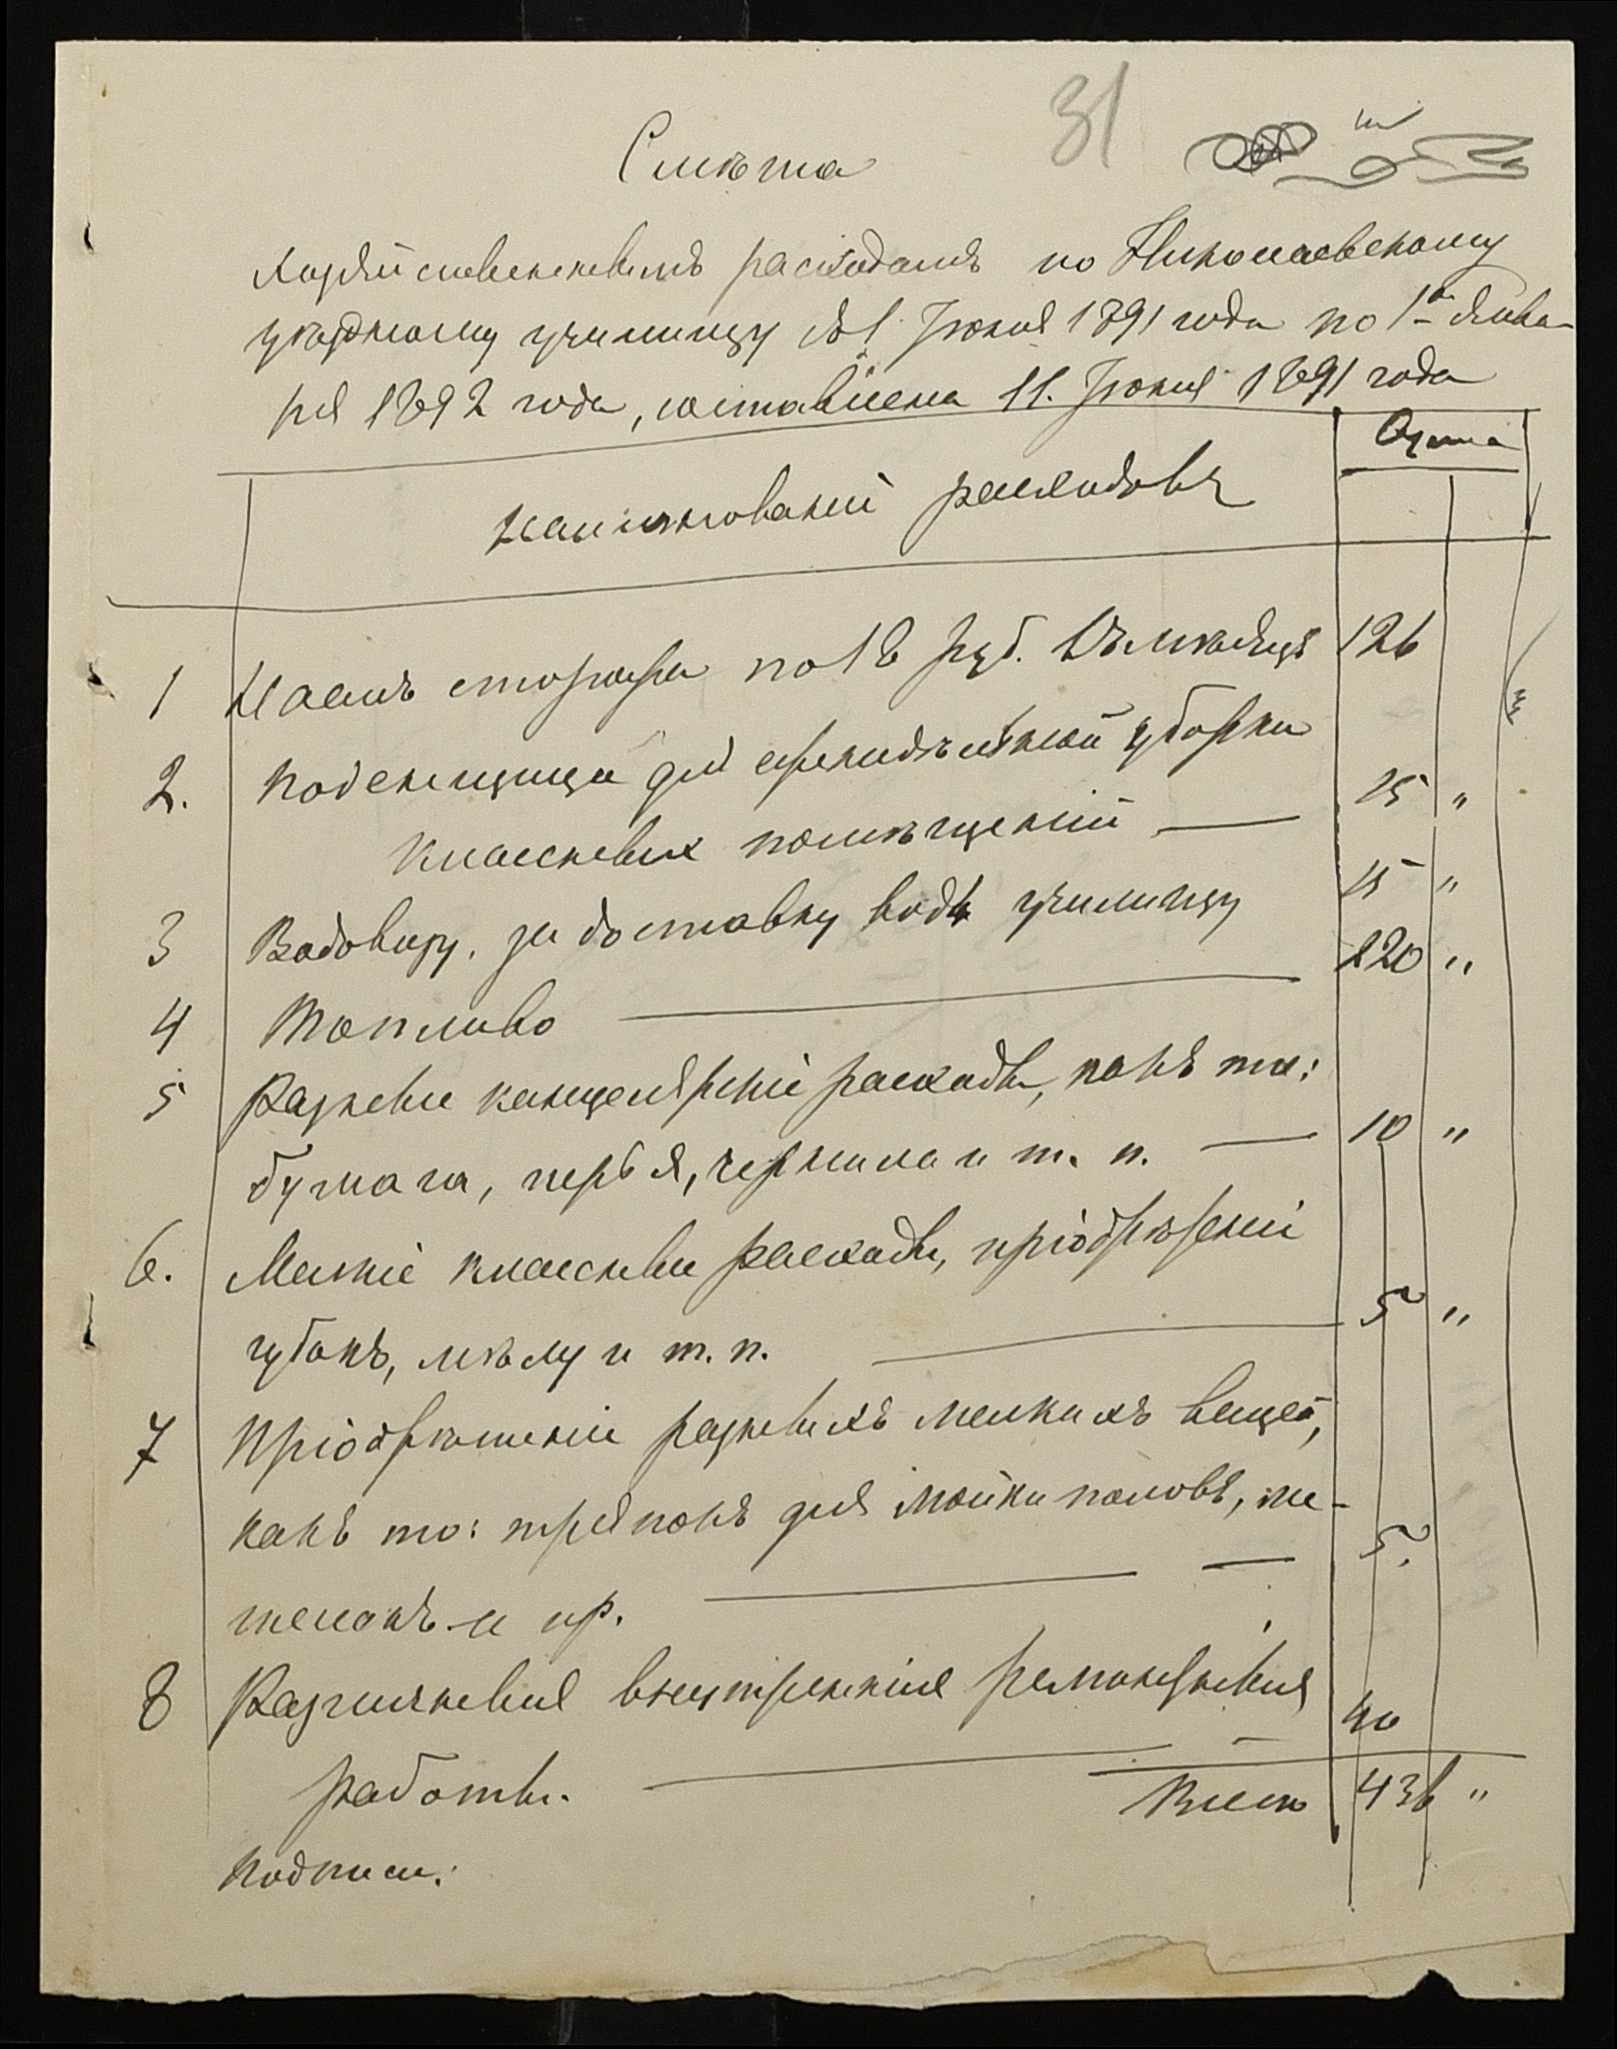 31
Смѣта
Хозяйственнымъ расходамъ по Николаевскому
уѣздному училищу съ 1 Іюня 1891 года по 1е Янва-
ря 1892 года, составлена 11. Іюня 1891 года
Наименованій расходовъ
Сумма
1 Наемъ сторожа по 18 руб. въ мѣсяцъ 126
2. Поденщица для еженедѣльной уборки
классныхъ помѣщеній — 15 "
3 Водовозу, за доставку воды училищу 15 "
4 Топливо — 220 "
5 Разные канцелярскіе расходы, какъ то:
бумага, перья, чернила и т. п. — 10 "
6. Мелкіе классные расходы, пріобрѣтеніе
губокъ, мѣлу и т. п. — 5 "
7 Пріобрѣтеніе разныхъ мелкихъ вещей,
какъ то: тряпокъ для мойки половъ, ме-
телокъ и пр. — 5.
8 Различныя внутреннія ремонтныя
работы. — 40
Всего 436 "
Подписи: